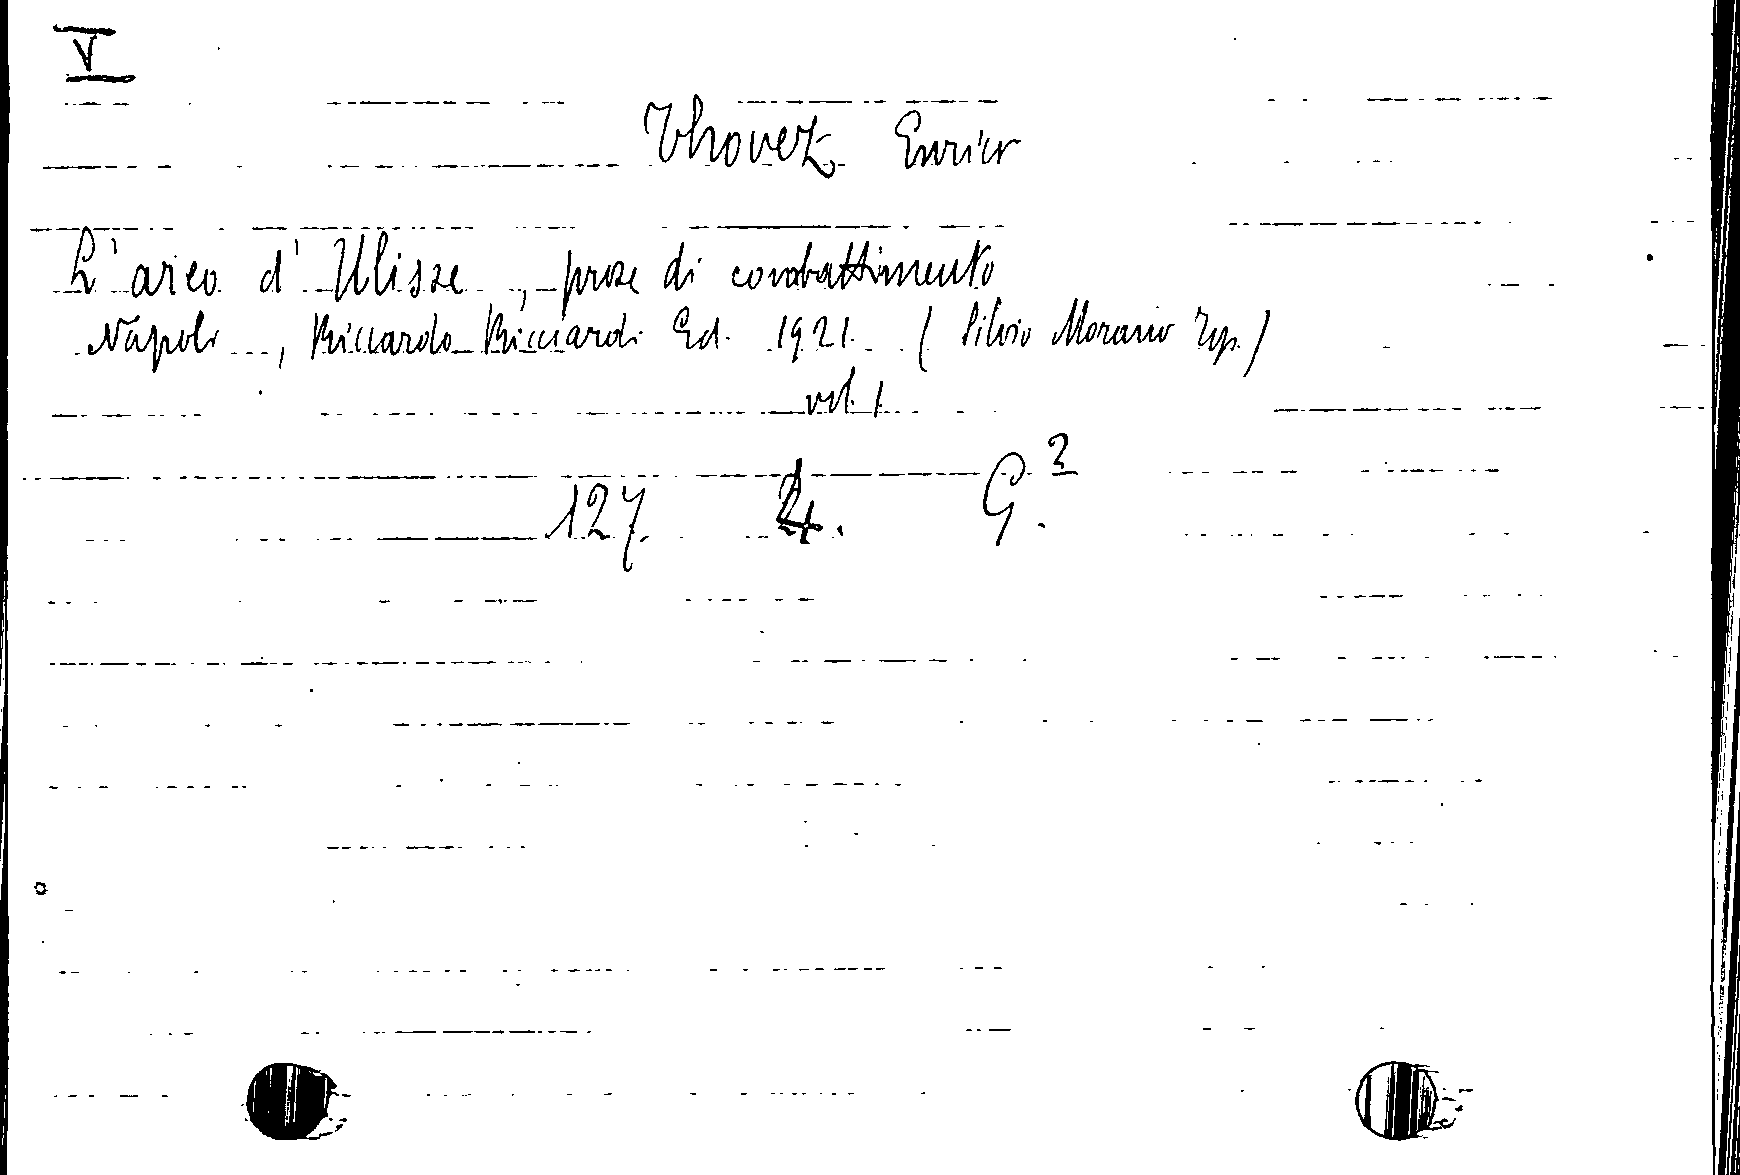 V
Thovez Enrico
L'arco d'Ulisse, prose di combattimento
Napoli, Riccardo Ricciardi Ed. 1921. (Silvio Morano Tip.)
vol. 1
127. G.²